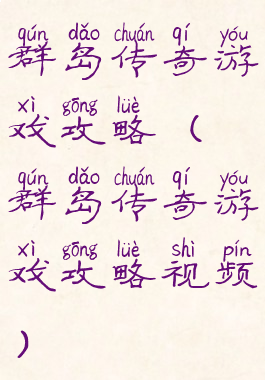 qún dǎo chuán qí yóu
群岛传奇游
xì gōng lüè
戏攻略（
qún dǎo chuán qí yóu
群岛传奇游
xì gōng lüè shì pín
戏攻略视频
）